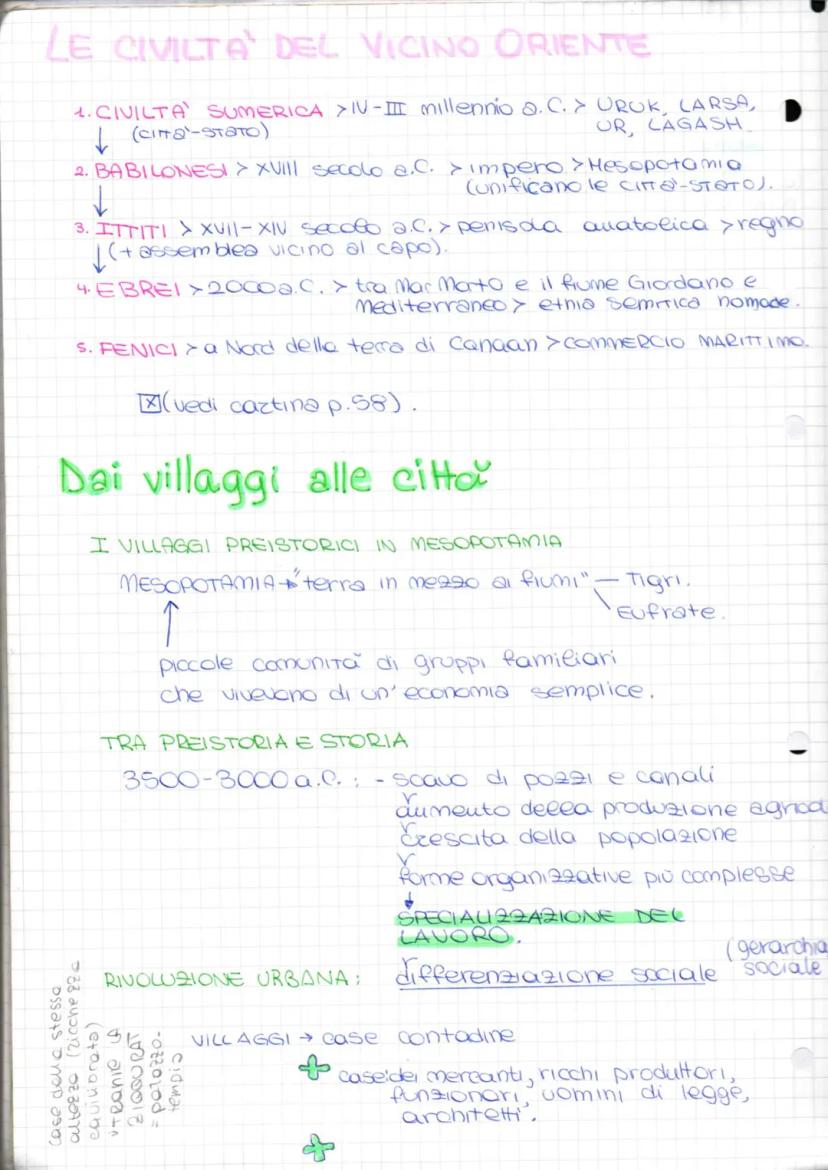 LE CIVILTA' DEL VICINO ORIENTE
1. CIVILTA' SUMERICA > IV-III millennio a.C. > URUK, LARSA,
(CITTA'-STATO) UR, LAGASH.
2. BABILONESI > XVIII secolo a.C. > impero > Mesopotamia
(unificano le CITTA'-STATO).
3. ITTITI > XVII-XIV secolo a.C. > penisola anatolica > regno
(+ assemblea vicino al capo).
4. EBREI > 2000 a.C. > tra Mar Morto e il fiume Giordano e
Mediterraneo > etnia semitica nomade.
5. FENICI > a Nord della terra di Canaan > COMMERCIO MARITTIMO.
(vedi cartina p.58).
Dai villaggi alle città
I VILLAGGI PREISTORICI IN MESOPOTAMIA
MESOPOTAMIA → "terra in mezzo ai fiumi" — Tigri.
Eufrate.
piccole comunità di gruppi familiari
che vivevano di un'economia semplice.
TRA PREISTORIA E STORIA
3500-3000 a.C.: - scavo di pozzi e canali
aumento della produzione agricol
crescita della popolazione
forme organizzative più complesse
SPECIALIZZAZIONE DEL
LAVORO.
RIVOLUZIONE URBANA: differenziazione sociale (gerarchia
sociale
VILLAGGI → case contadine
+ case dei mercanti, ricchi produttori,
funzionari, uomini di legge,
architetti.
+
case della stessa
altezza (ricchezza
equilibrata)
tranne la
ZIGGURAT
= palazzo-
tempio